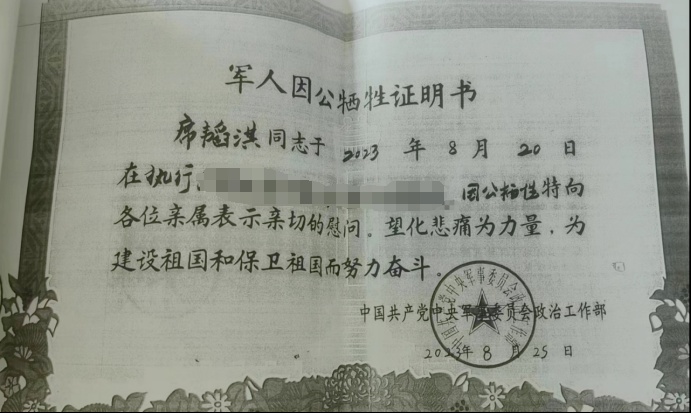 军人因公牺牲证明书
席韬淇同志于 2023 年 8 月 20 日
在执行 因公牺牲特向
各位亲属表示亲切的慰问。望化悲痛为力量，为
建设祖国和保卫祖国而努力奋斗。
中国共产党中央军事委员会政治工作部
2023年 8 月 25 日